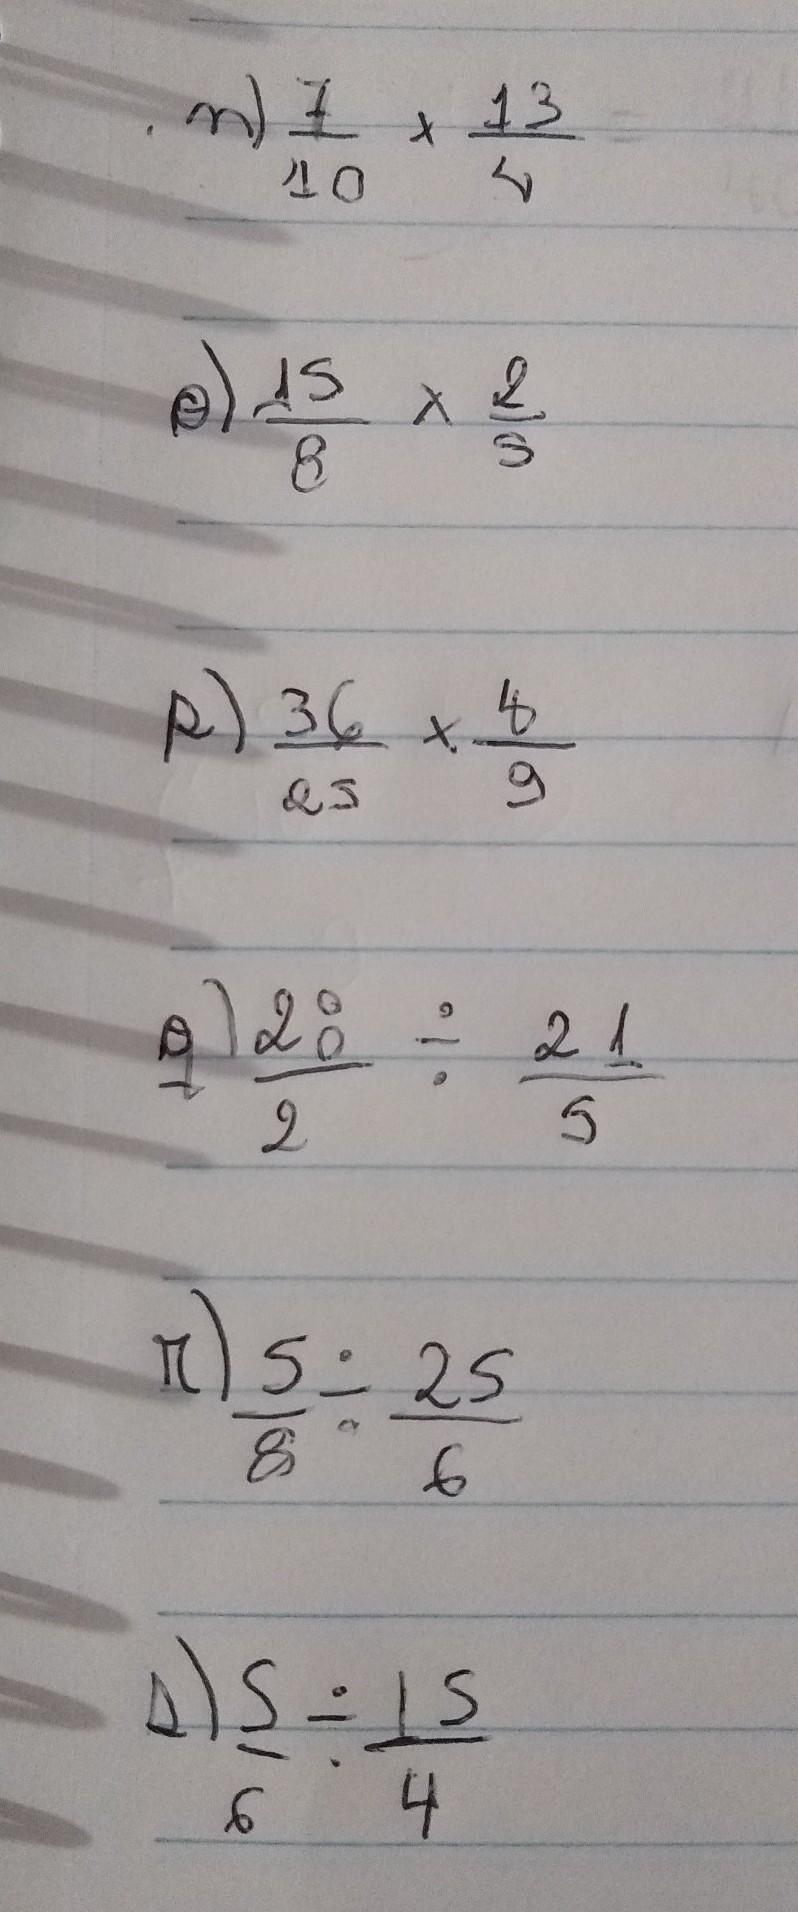 n) 7/10 × 13/4 =
o) 15/8 × 2/5
p) 36/25 × 8/9
q) 28/2 ÷ 21/5
r) 5/8 ÷ 25/6
s) 5/6 ÷ 15/4